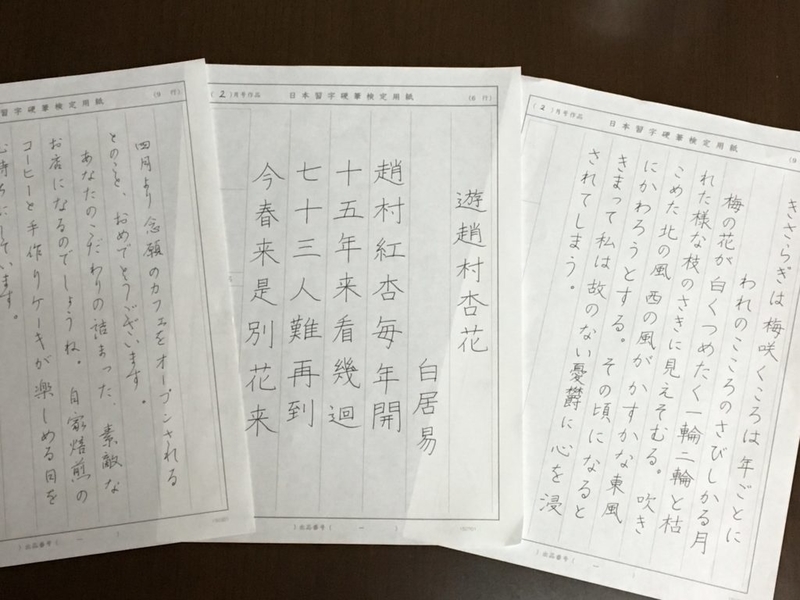 (2)月号作品 日本習字硬筆検定用紙
きさらぎは梅咲くころは年ごとに
われのこころのさびしかる月
梅の花が白くつめたく一輪二輪と枯
れた様な枝のさきに見えそむる。吹き
こめた北の風西の風がかすかな東風
にかわろうとする。その頃になると
きまって私は故のない憂鬱に心を浸
されてしまう。
(出品番号( ー )
(2)月号作品 日本習字硬筆検定用紙 (8 行)
遊趙村杏花
白居易
趙村紅杏毎年開
十五年来看幾迴
七十三人難再到
今春来是別花来
(出品番号( ー )
習字硬筆検定用紙 (8 行)
四月より念願のカフェをオープンされる
とのこと、おめでとうございます。
あなたのこだわりの詰まった、素敵な
お店になるのでしょうね。自家焙煎の
コーヒーと手作りケーキが楽しめる日を
心待ちにしています。
(出品番号( ー )